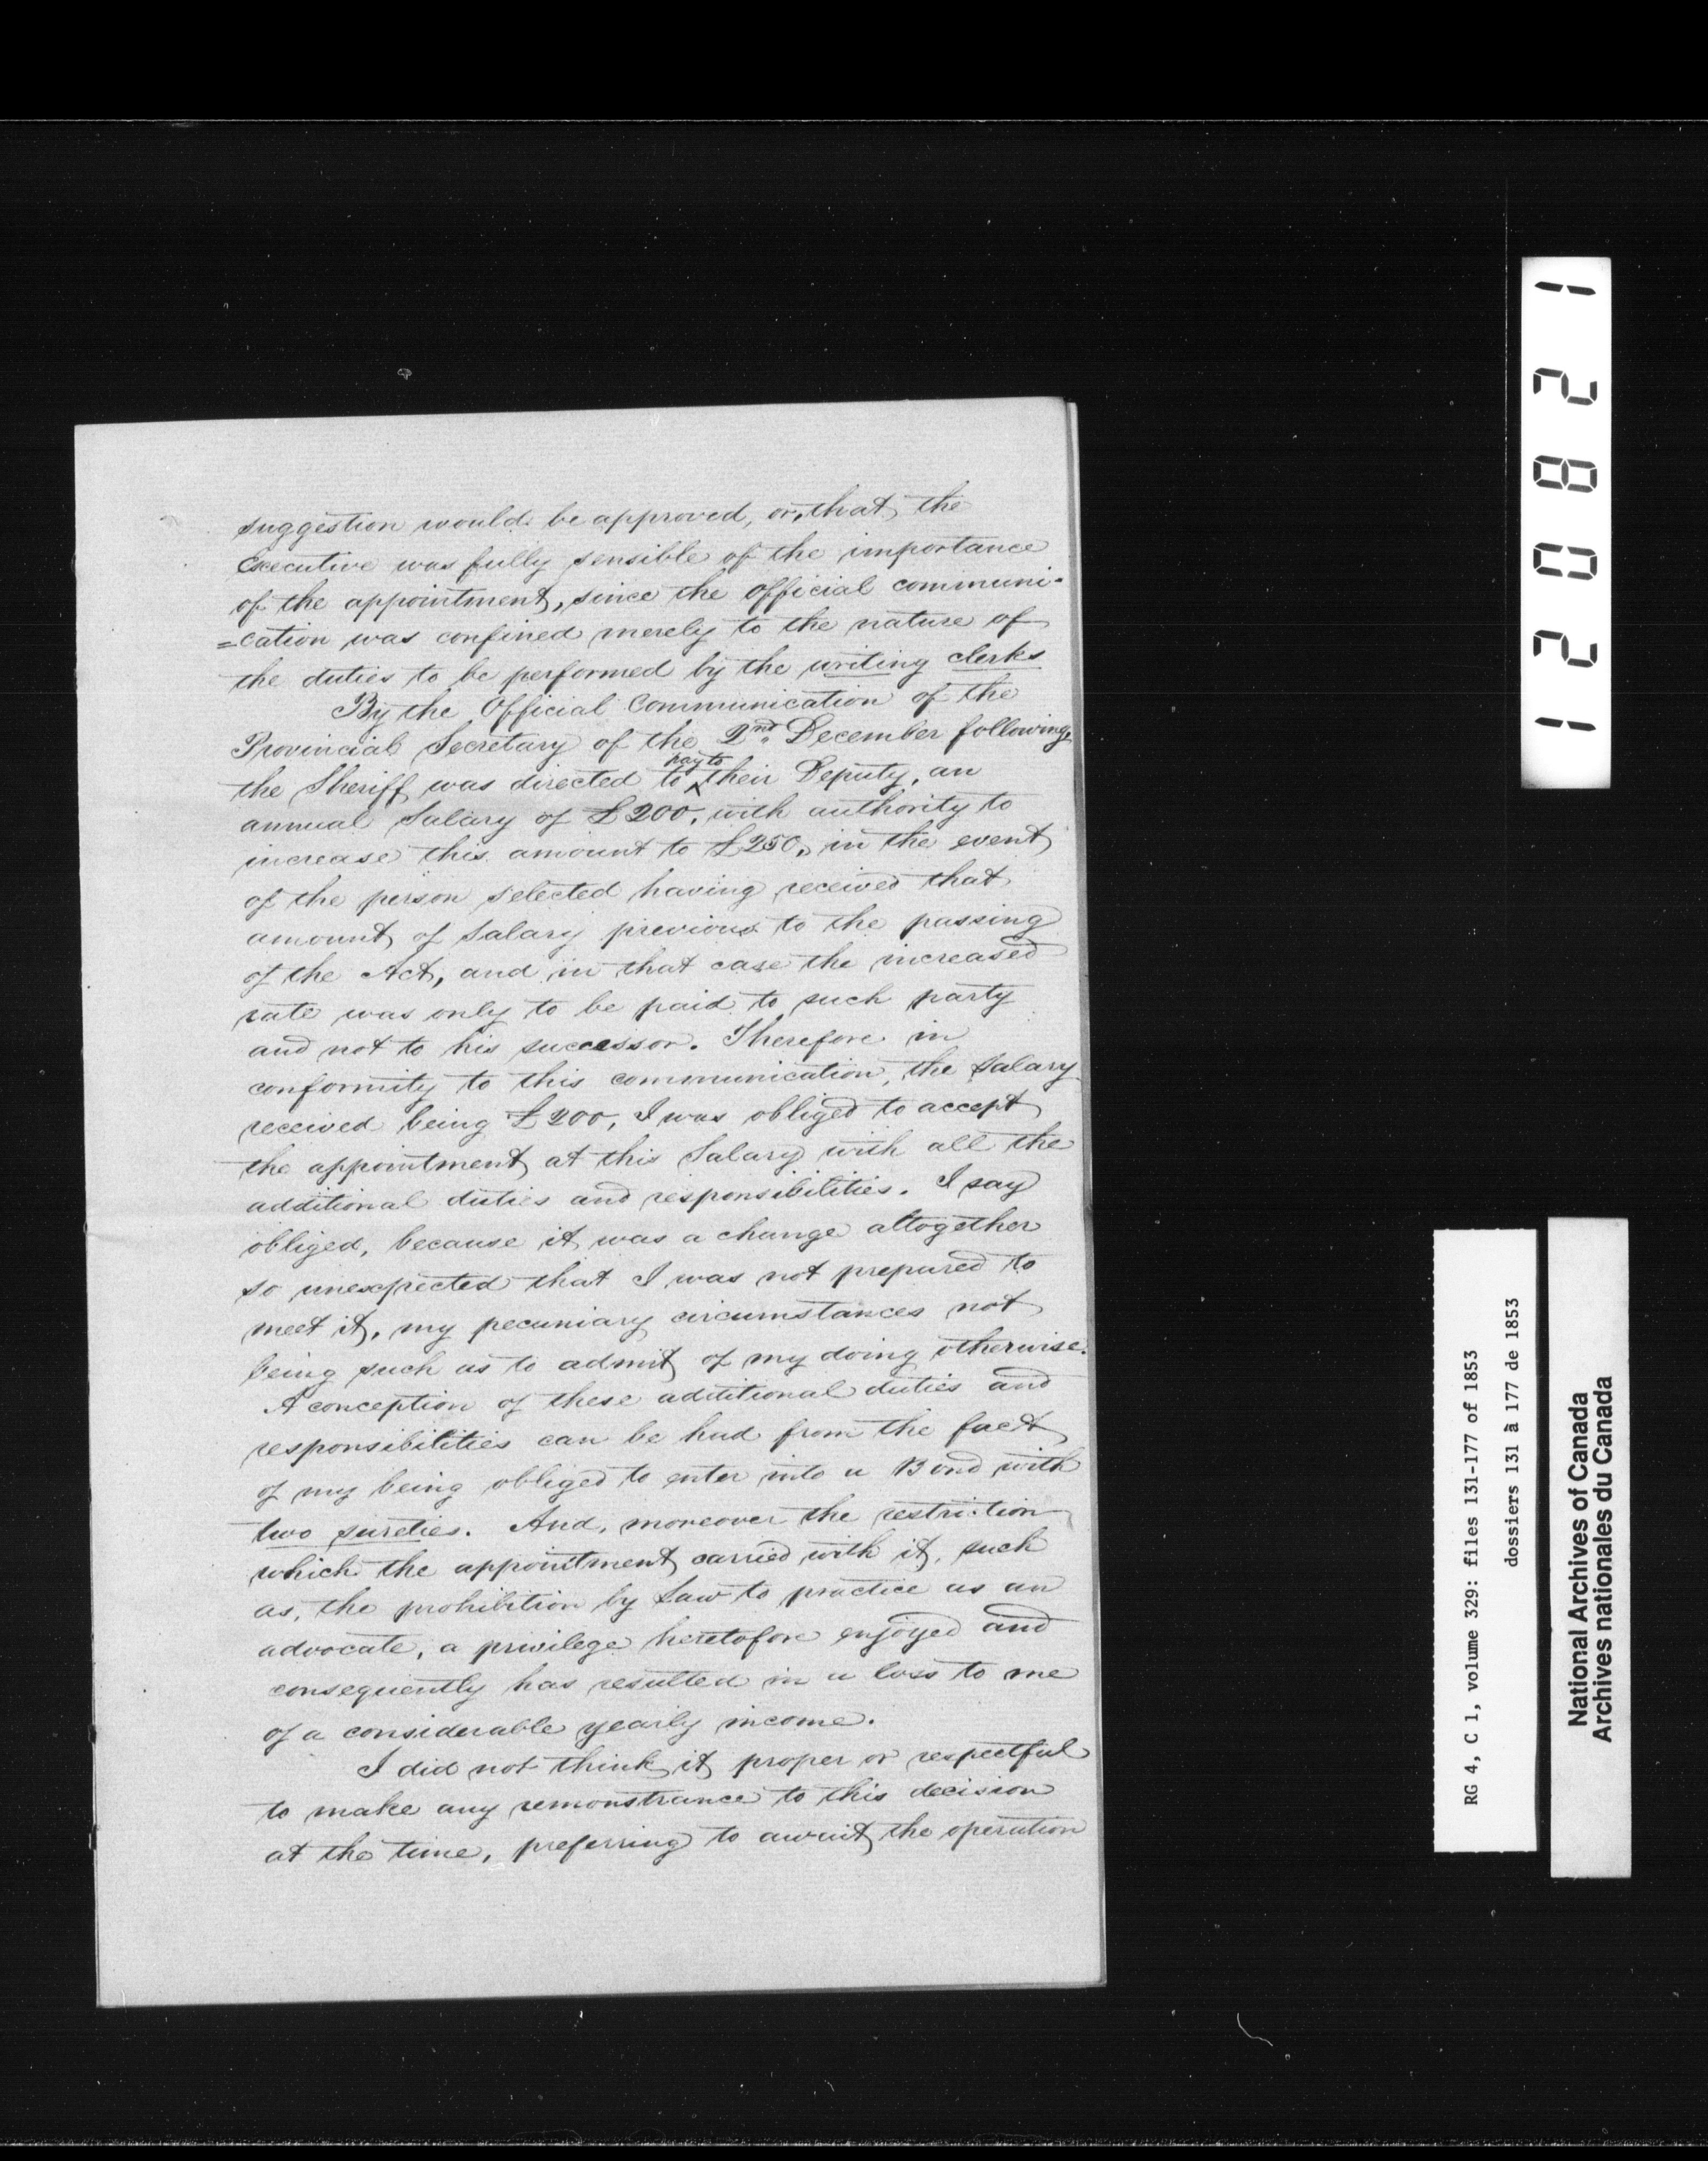 suggestion would be approved, or, that the
Executive was fully sensible of the importance
of the appointment, since the official communi-
=cation was confined merely to the nature of
the duties to be performed by the writing clerks
By the Official Communication of the
Provincial Secretary of the 2nd. December following,
the Sheriff was directed to pay to their Deputy, an
annual Salary of £200, with authority to
increase this amount to £250, in the event
of the person selected having received that
amount of Salary previous to the passing
of the Act, and in that case the increased
rate was only to be paid to such party
and not to his successor. Therefore in
conformity to this communication, the Salary
received being £200, I was obliged to accept
the appointment at this Salary with all the
additional duties and responsibilities. I say
obliged, because it was a change altogether
so unexpected that I was not prepared to
meet it, my pecuniary circumstances not
being such as to admit of my doing otherwise.
A conception of these additional duties and
responsibilities can be had from the fact
of my being obliged to enter into a Bond with
two sureties. And, moreover the restriction
which the appointment carried with it, such
as, the prohibition by Law to practice as an
advocate, a privilege heretofore enjoyed and
consequently has resulted in a loss to me
of a considerable yearly income.
I did not think it proper or respectful
to make any remonstrance to this decision
at the time, preferring to await the operation
120821
RG 4, C 1, volume 329: files 131-177 of 1853
dossiers 131 à 177 de 1853
National Archives of Canada
Archives nationales du Canada